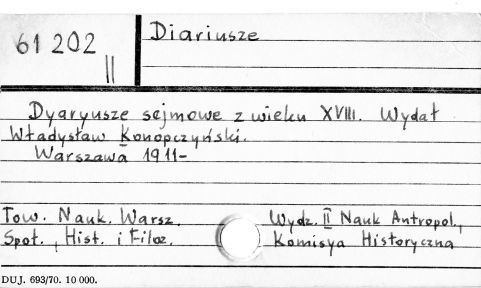 61 202
II
Diariusze
Dyaryusze sejmowe z wieku XVIII. Wydał
Władysław Konopczyński.
Warszawa 1911-
Tow. Nauk. Warsz. Wydz. II Nauk Antropol.,
Społ., Hist. i Filoz. Komisya Historyczna
DUJ. 693/70. 10 000.